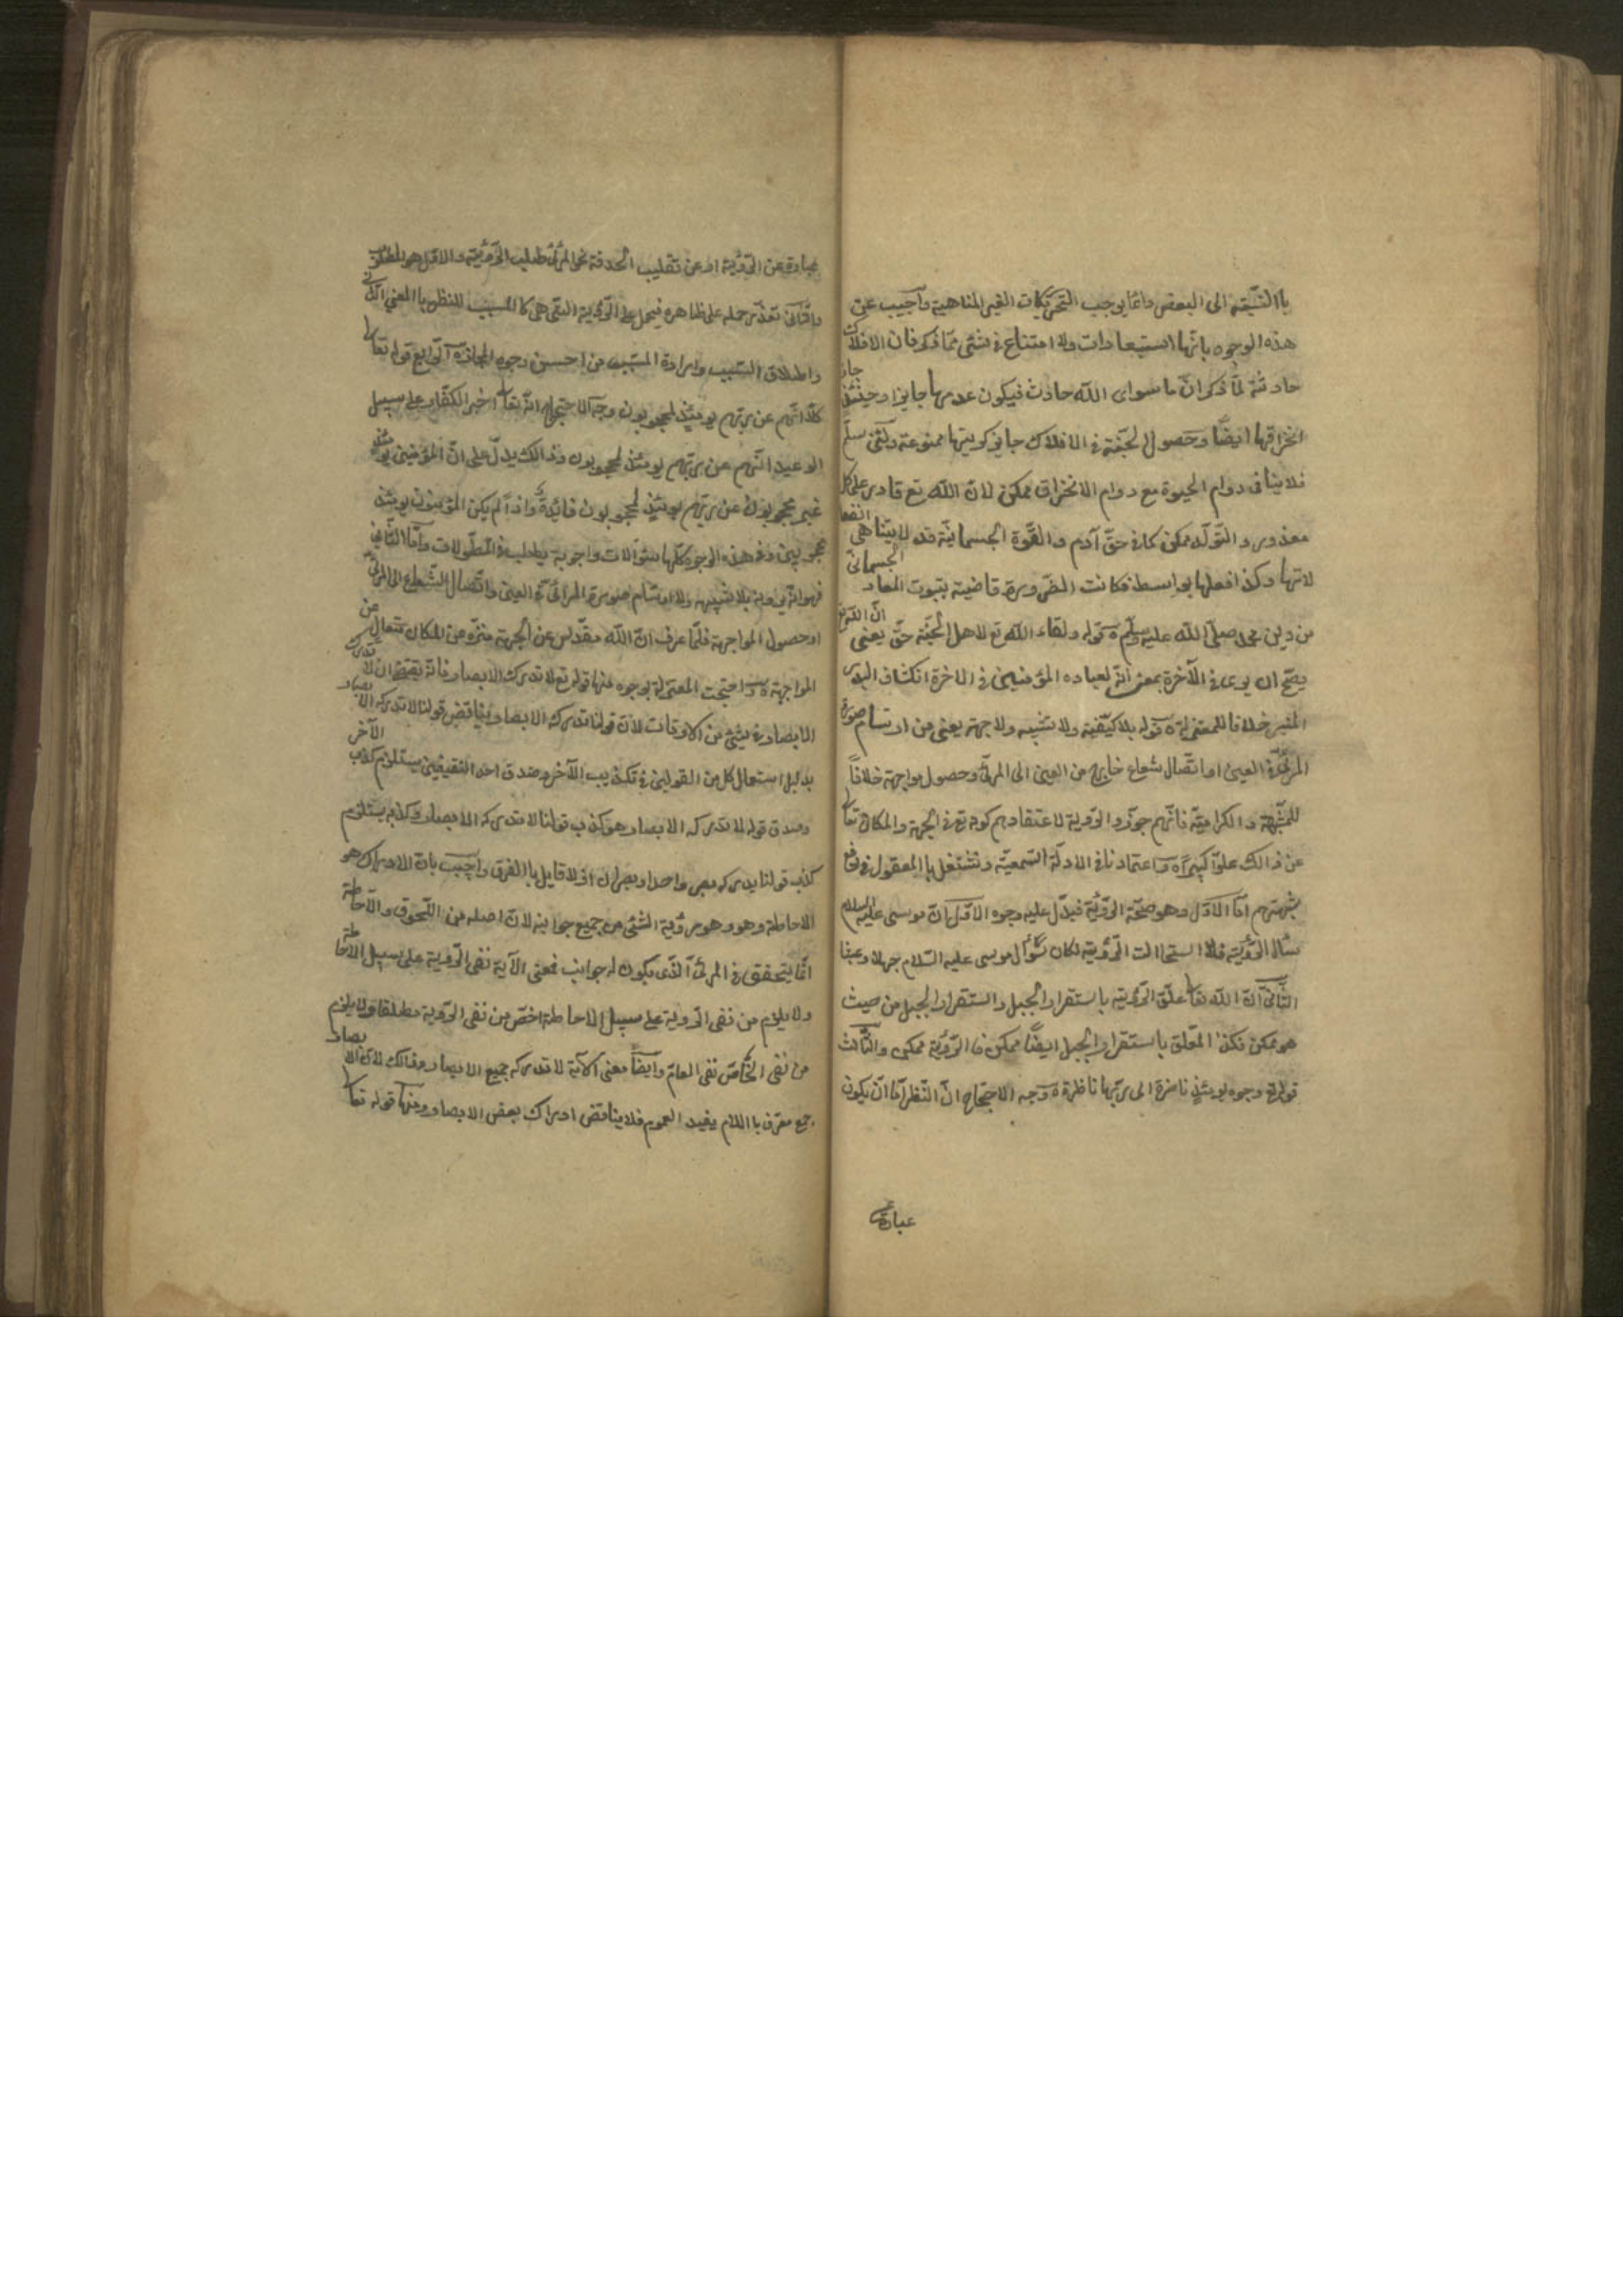 باالنسبة الى البعض وانما يوجب التحريكات الغير المتناهية وأجيب عن
هذه الوجوه بانها استبعادات ولا امتناع في شئ مما ذكر فان الافلاك
حادثة لما ذكر ان ما سواى الله حادث فيكون عدمها جايزا وحينئذ جاز
انخراقها ايضا وحصول الجنة في الافلاك جايز كويتها ممنوعة ولئن سلم
فلا ينافى دوام الحيوة مع دوام الاحتراق ممكن لان الله تع قادر على كل
مقدور والتولد ممكن كما في حق آدم والقوة الجسمانية قد لا يتناهى انفعا
لاتها وكذا فعلها بواسطة فكانت الضرورة قاضية بثبوت المعاد الجسمانى
من دين محمد صلى الله عليه وسلم ه قوله ولقاء الله تع لاهل الجنة حق يعنى ان الله تع
يصح ان يرى في الآخرة بمعنى انه لعباده المؤمنين في الاخرة انكشاف البدر
المنير خلافا للمعتزلة ه قوله بلا كيفية ولا تشبيه ولا جهة يعنى من ارتسام صورة
المرئى في العين او اتصال شعاع خارج من العين الى المرئى وحصول مواجهة خلافاً
للمشبهة والكرامية فانهم جوزوا الروية لاعتقادهم كونه تع في الجهة والمكان تعا
عن ذالك علوا كبيرا ه واعتمادنا في الادلة السمعية ونشتغل باالمعقول في دفع
شبهتهم اما الاول وهو صحة الرؤية فيدل عليه وجوه الاول ان موسى عليه السلام
سال الرؤية فلو استحالت الرؤية لكان سؤال موسى عليه السلام جهلا وعبثا
الثانى ان الله تعا علق الرؤية باستقرار الجبل واستقرار الجبل من حيث
هو ممكن فكذا المعلق باستقرار الجبل ايضا ممكن فالرؤية ممكن والثالث
قوله وجوه يومئذ ناضرة الى ربها ناظرة ه وجه الاحتجاج ان النظر اما ان يكون
عبارة عن
عبارة عن الرؤية او عن تقليب الحدقة نحو المرئى طلب الرؤية والاول هو المطلوب
والثانى تعذر حمله على ظاهره فيحمل على الرؤية التى هى كا المسبب للنظر باالمعنى الثانى
واطلاق السبب وارادة المسبب من احسن وجوه المجاز ه الرابع قوله تعا
كلا انهم عن ربهم يومئذ لمحجوبون وجه الاحتجاج انه تعا اخبر الكفار على سبيل
الوعيد انهم عن ربهم يومئذ لمحجوبون وذالك يدل على ان المؤمنين يومئذ
غير محجوبون عن ربهم يومئذ لمحجوبون فائدة واذا لم يكن المؤمنون يومئذ
محجوبين وفي هذه الوجوه كلها سؤالات واجوبة يطلب في المطولات وأما الثانى
فهو انه يرونه بلا تشبيه ولا ارتسام صورة المرائى في العين واتصال الشعاع الى المرئى
او حصول المواجهة فلما عرف ان الله مقدس عن الجهة منزه عن المكان متعال عن
المواجهة ه واحتجت المعتزلة بوجوه منها قوله تع لا تدركه الابصار فانه يقتضى ان لا تدركه
الابصار في شئ من الاوقات لان قولنا تدركه الابصار يناقض قولنا لا تدركه الابصار
بدليل استعمال كل من القولين في تكذيب الآخر وصدق احد النقيضين يستلزم كذب الآخر
وصدق قوله لا تدركه الابصار هو كذب قولنا لا تدركه الابصار وكذبه يستلزم
كذب قولنا يدركه بصر واحد او بصران اذ لا قايل باالفرق واجيب بان الادراك هو
الاحاطة وهو وهو رؤية الشئ من جميع جوانبه لان اصله من اللحوق والاحاطة
انما يتحقق في المرئى الذى يكون له جوانب فمعنى الآية نفى الروية على سبيل الاحاطة
ولا يلزم من نفى الروية على سبيل الاحاطة اخص من نفى الروية مطلقا ولا يلزم
من نفى الخاص نفى العام وأيضا معنى الآية لا تدركه جميع الابصار وذالك لان الابصار
جمع معرف باالام يفيد العموم فلا يناقض ادراك بعض الابصار ومنها قوله تعا